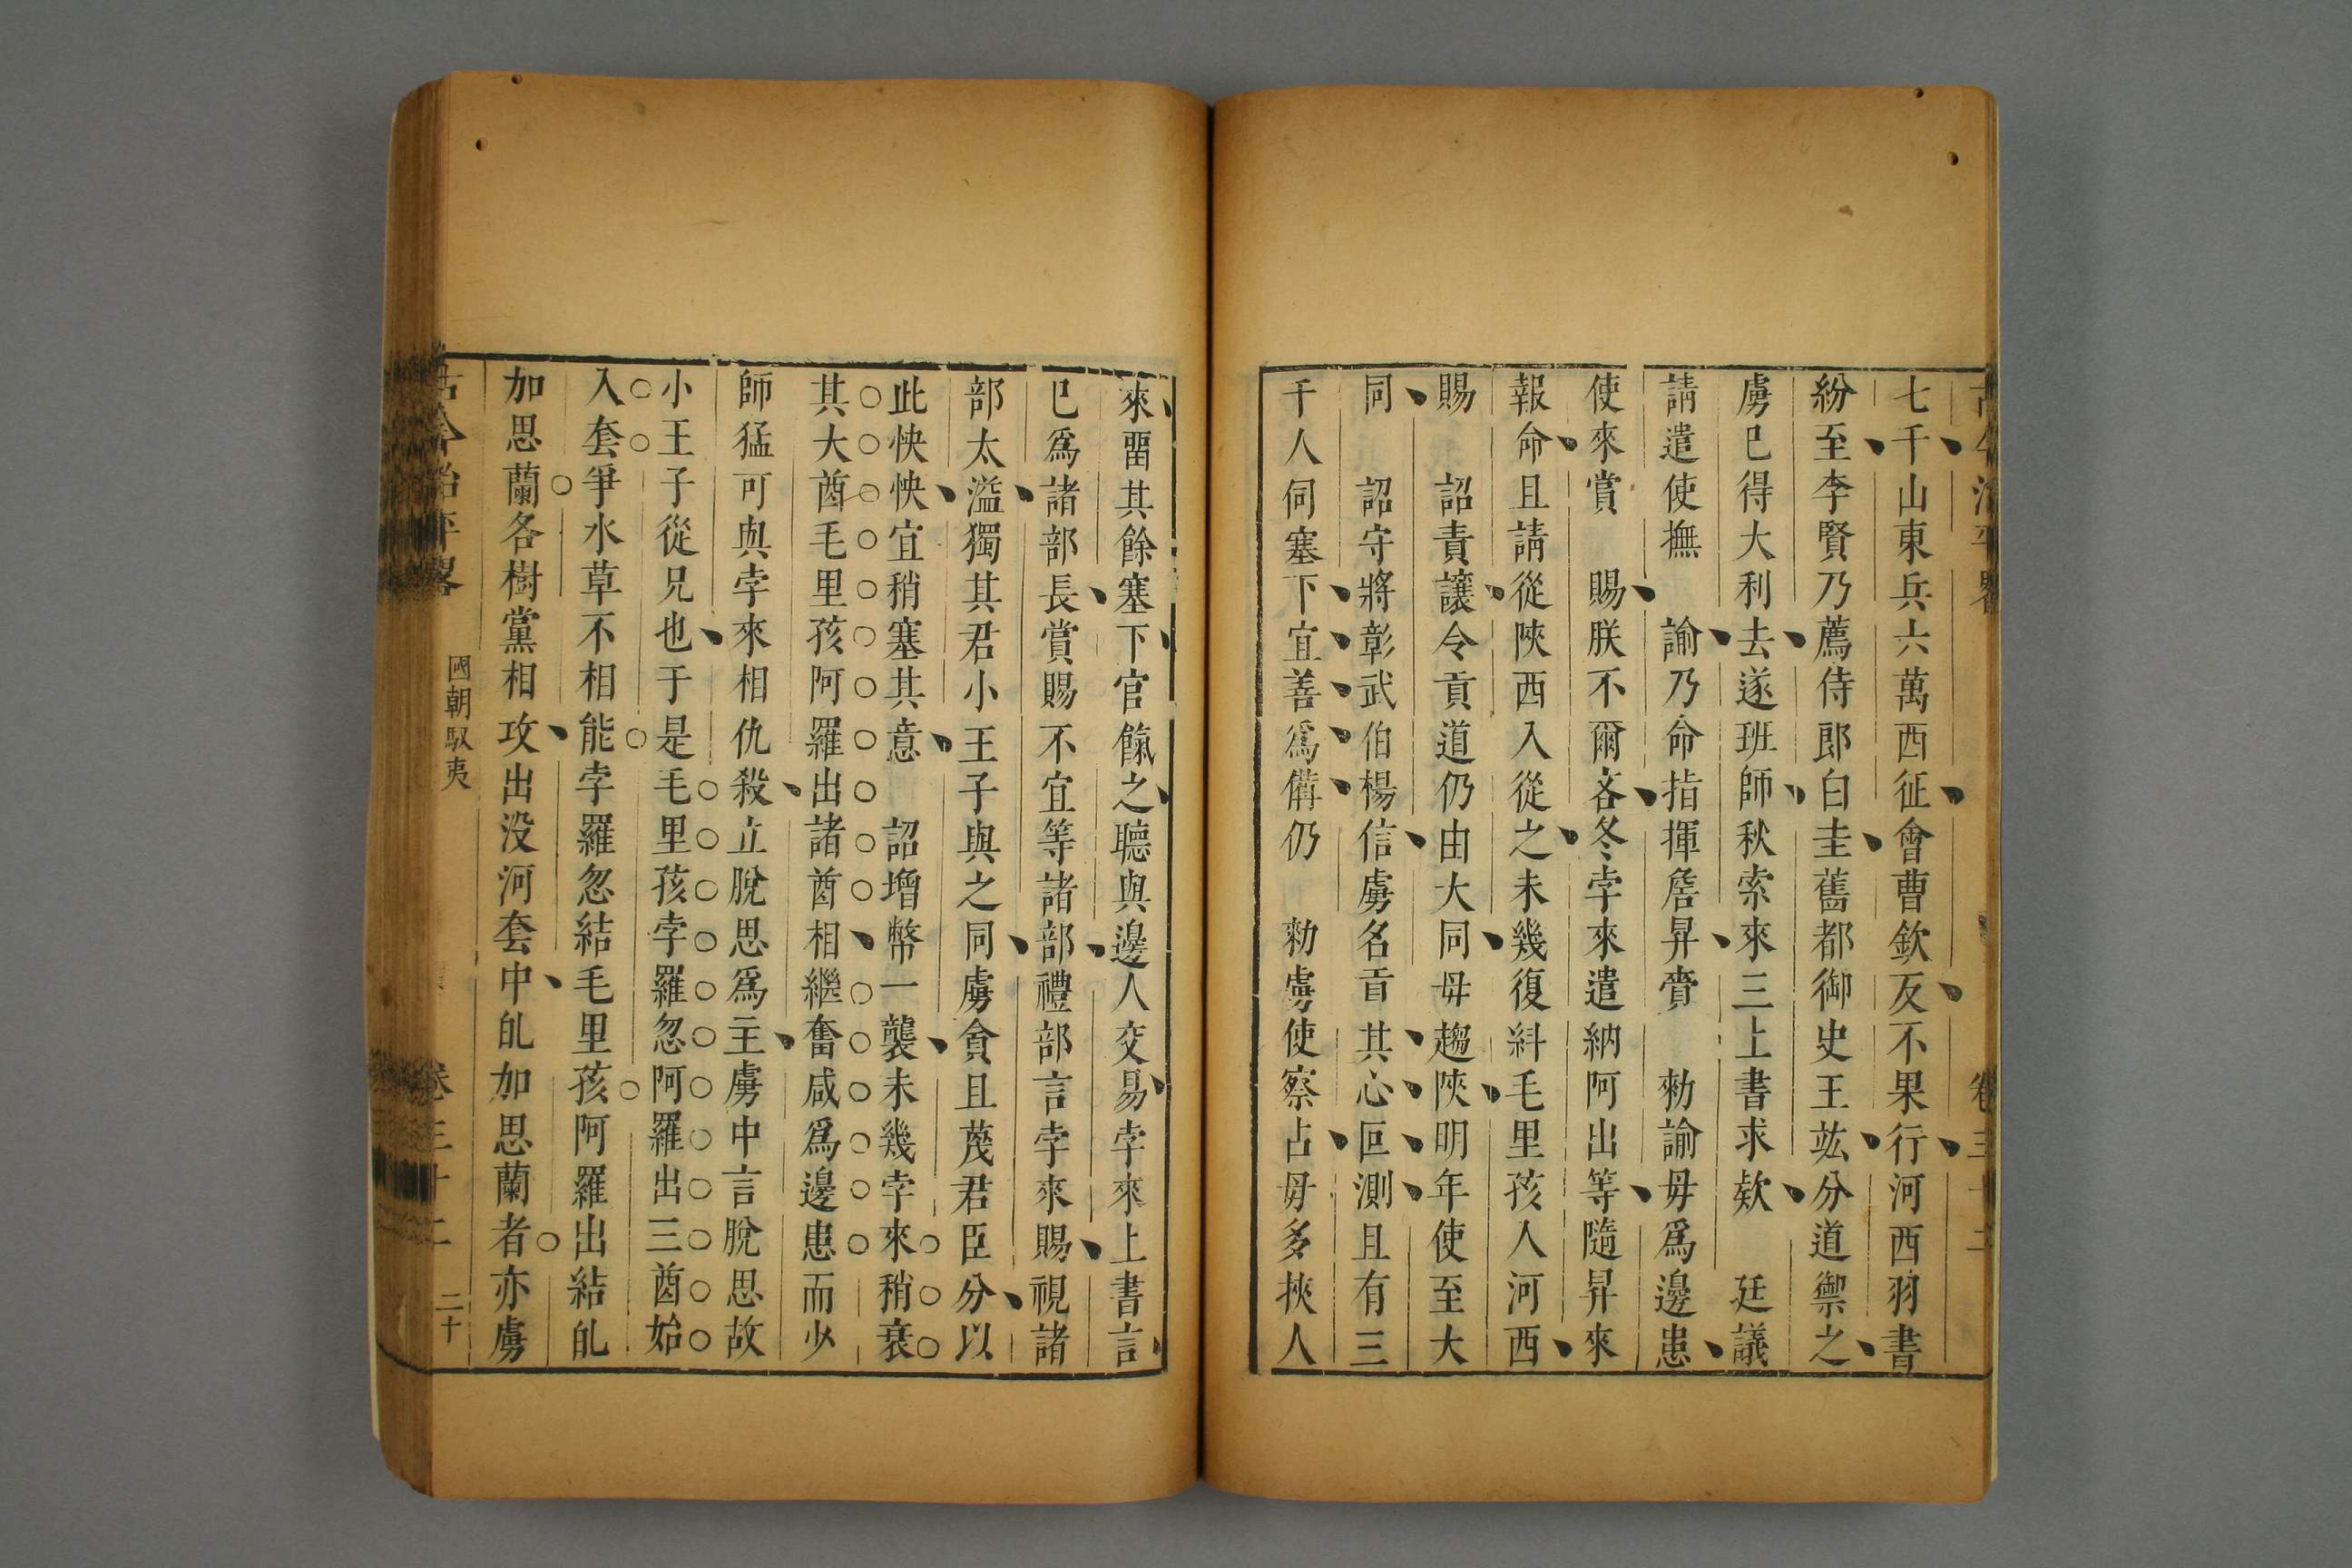 七千山東兵六萬西征會曹欽反不果行河西羽書
紛至李賢乃薦侍郎白圭舊都御史王竑分道禦之
虜巳得大利去遂班師秋索來三上書求欵　廷議
請遣使撫　諭乃命指揮詹昇賫　勑諭毋爲邊患
使來賞　賜朕不爾吝冬孛來遣納阿出等隨昇來
報命且請從陜西入從之未幾復糾毛里孩入河西
賜　詔責讓令貢道仍由大同毋趨陜明年使至大
同　詔守將彰武伯楊信虜名貢其心叵測且有三
千人伺塞下宜善爲備仍　勑虜使察占毋多挾人
來畱其餘塞下官餼之聽與邊人交易孛來上書言
巳爲諸部長賞賜不宜等諸部禮部言孛來賜視諸
部太溢獨其君小王子與之同虜貪且蔑君臣分以
此怏怏宜稍塞其意　詔增幣一襲未幾孛來稍衰
其大酋毛里孩阿羅出諸酋相繼奮咸爲邊患而少
師猛可與孛來相仇殺立脫思爲主虜中言脫思故
小王子從兄也于是毛里孩孛羅忽阿羅出三酋始
入套爭水草不相能孛羅忽結毛里孩阿羅出結癿
加思蘭各樹黨相攻出没河套中癿加思蘭者亦虜
古今治平畧　國朝馭夷　卷三十二　二十